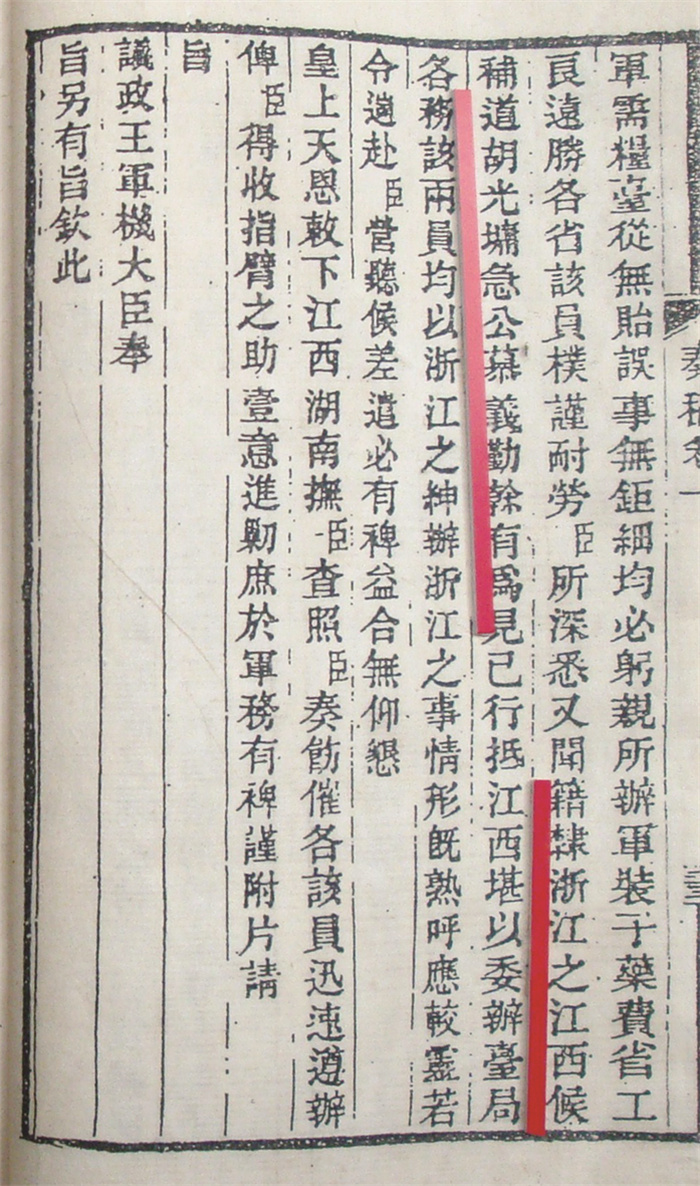 軍需糧臺從無貽誤事無鉅細均必躬親所辦軍裝子藥費省工
良遠勝各省該員樸謹耐勞臣所深悉又聞籍隸浙江之江西候
補道胡光墉急公慕義勤幹有爲見已行抵江西堪以委辦臺局
各務該兩員均以浙江之紳辦浙江之事情形既熟呼應較靈若
令遄赴臣營聽候差遣必有裨益合無仰懇
皇上天恩敕下江西湖南撫臣查照臣奏飭催各該員迅速遵辦
俾臣得收指臂之助壹意進勦庶於軍務有裨謹附片請
旨
議政王軍機大臣奉
旨另有旨欽此